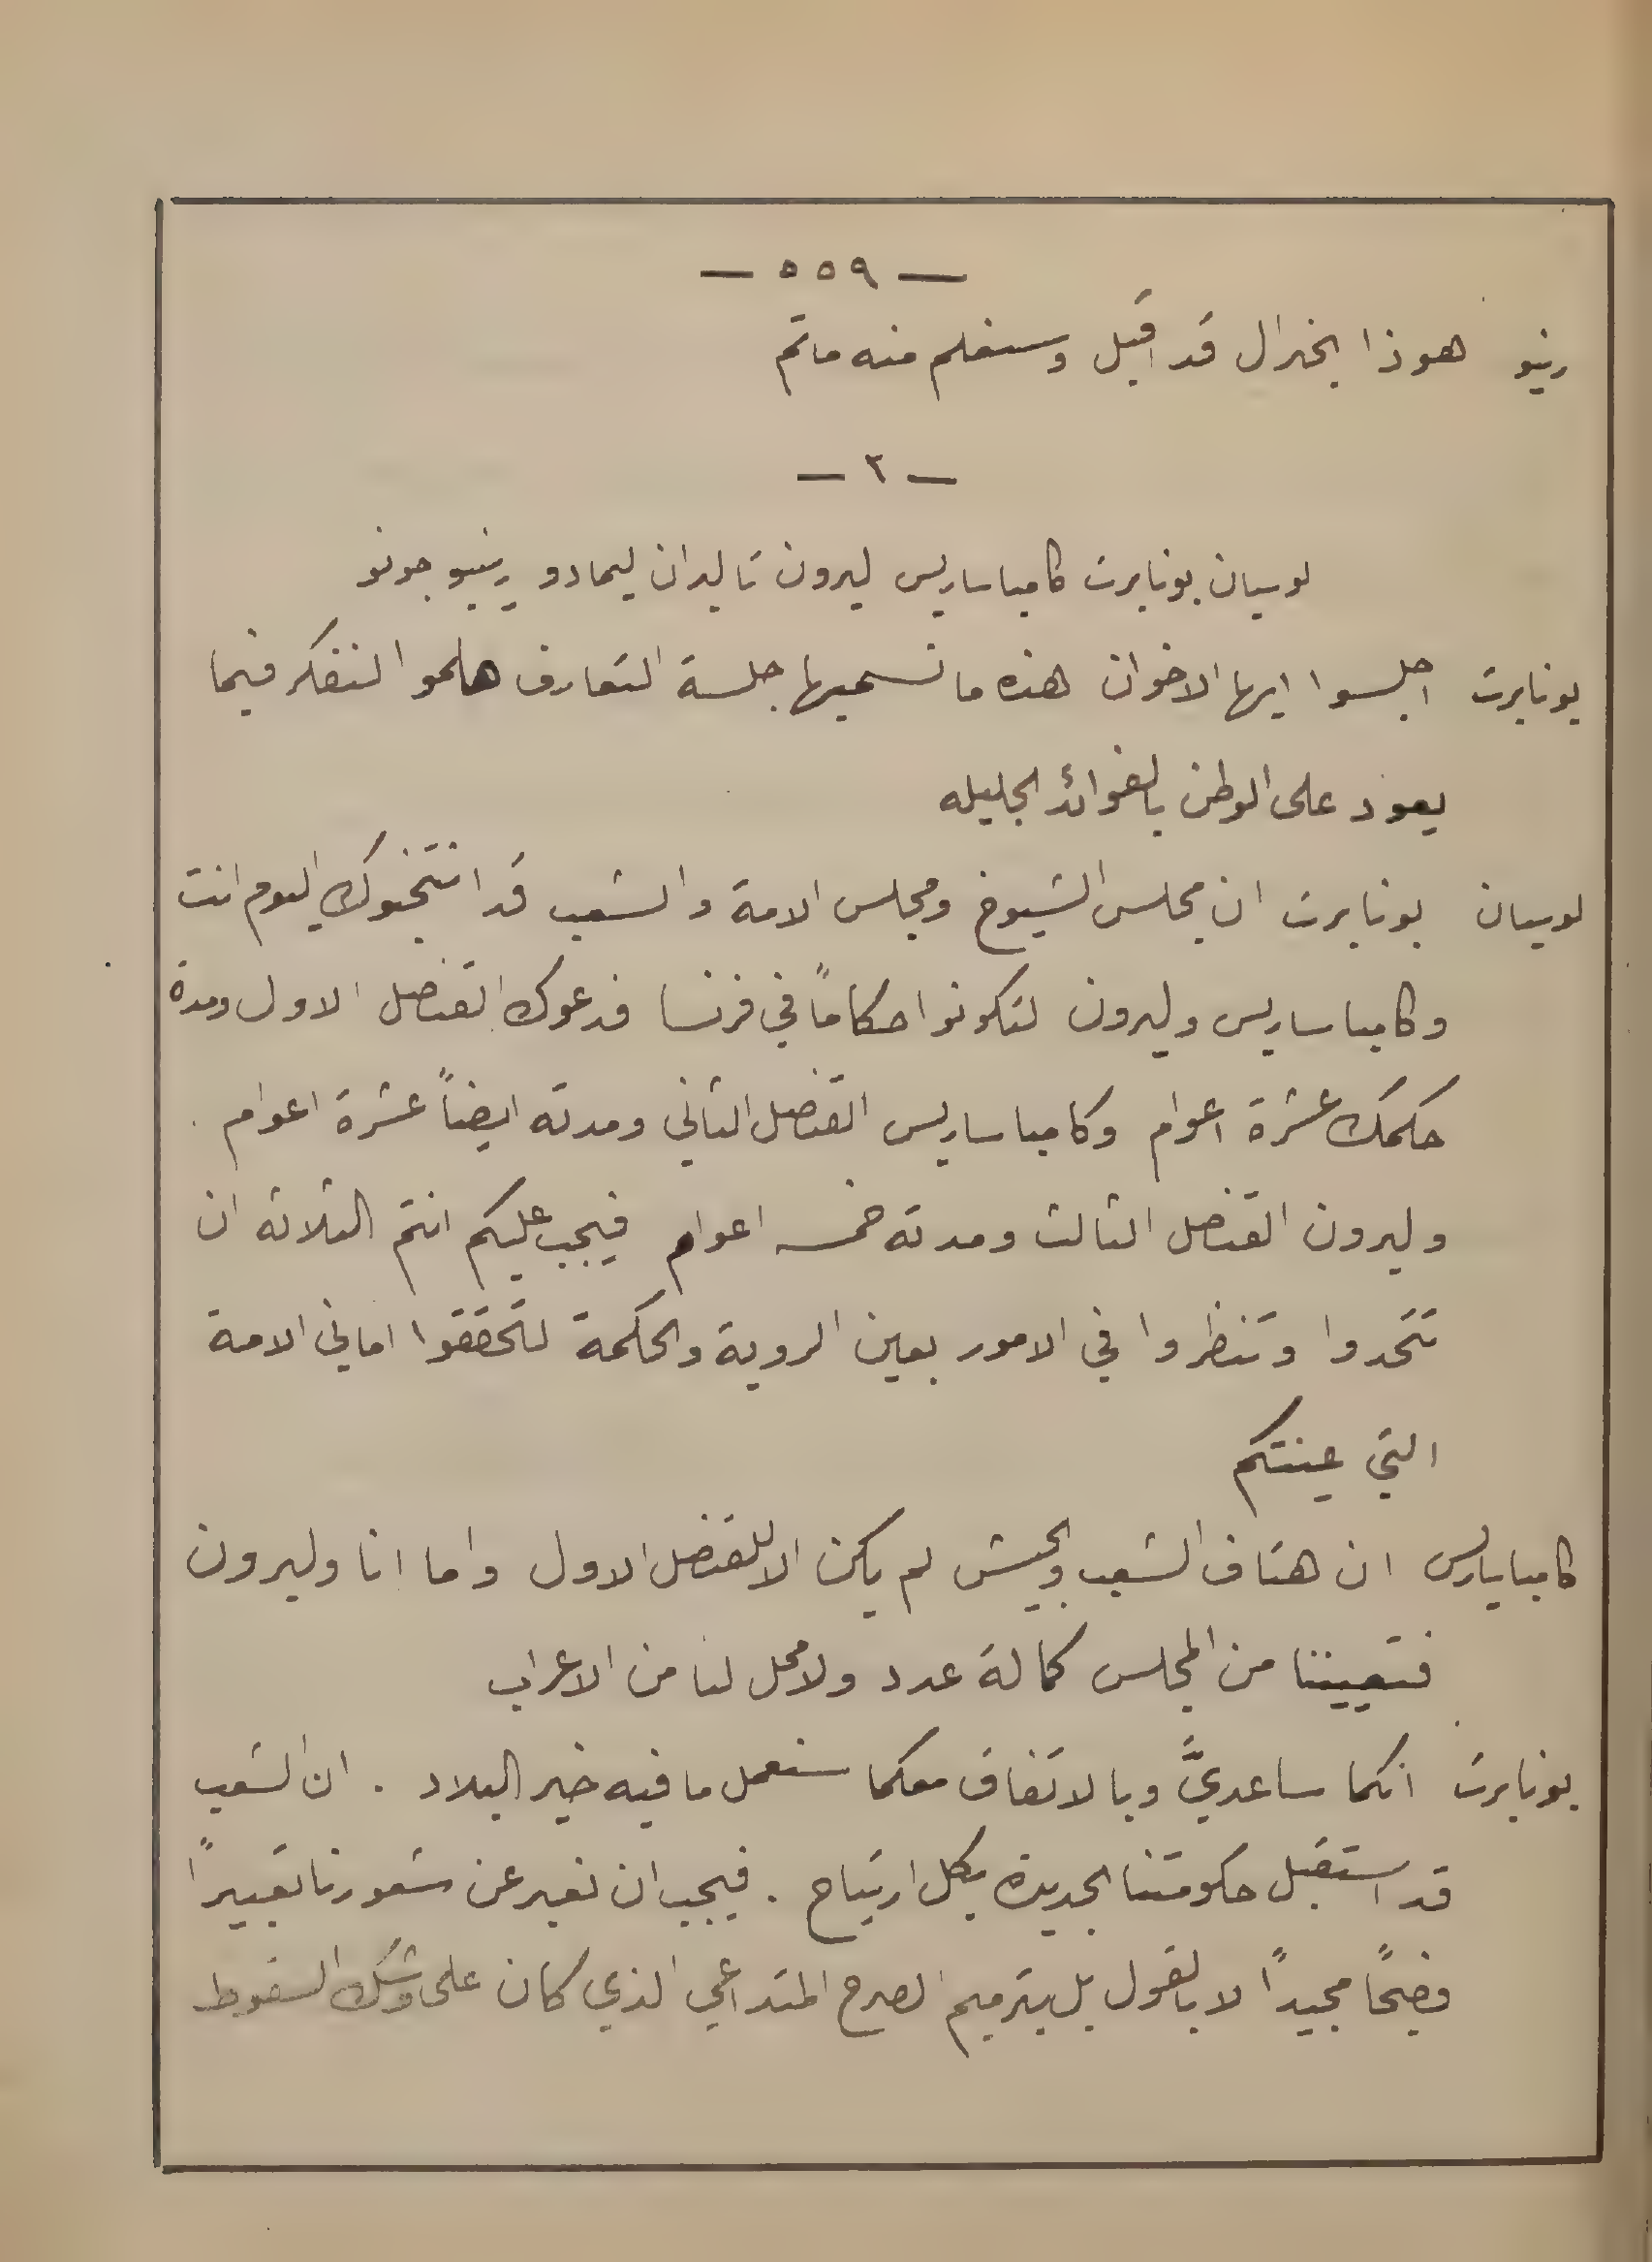 — ٥٥٩ —
رنيو هوذا الجنرال قد اقبل وسنعلم منه ماتم
— ٢ —
لوسيان بونابرت كامباساريس ليبرون تاليران ليمادو رينيو جونو
بونابرت اجلسوا ايها الاخوان هذه ما نسميها جلسة التعارف هلموا لنفكر فيما
يعود على الوطن بالفوائد الجليله
لوسيان بونابرت ان مجلس الشيوخ ومجلس الامة والشعب قد انتخبوك اليوم انت
وكامباساريس وليبرون لتكونوا حكاماً في فرنسا فدعوك القنصل الاول ومدة
حكمك عشرة اعوام وكامباساريس القنصل الثاني ومدته ايضاً عشرة اعوام
وليبرون القنصل الثالث ومدته خمسه اعوام فيجب عليكم انتم الثلاثه ان
تتحدوا وتنظروا في الامور بعين الروية والحكمة لتحققوا اماني الامة
التي عينتكم
كامبايارس ان هتاف الشعب والجيش لم يكن الا للقنصل الاول واما انا وليبرون
فتعييننا من المجلس كمالة عدد ولا محل لنا من الاعراب
بونابرت انكما ساعديَّ وبالاتفاق معكما سنعمل ما فيه خير البلاد . ان الشعب
قد استقبل حكومتنا الجديدة بكل ارتياح . فيجب ان نعبر عن شعورنا تعبيراً
فصيحاً مجيداً لا بالقول بل بترميم الصرح المتداعي الذي كان على وشك السقوط